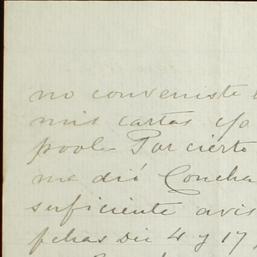 no conveniste
mis cartas y/o
poole Por cierto
me dió Concha
suficiente avis
fchas Dic 4 y 17,